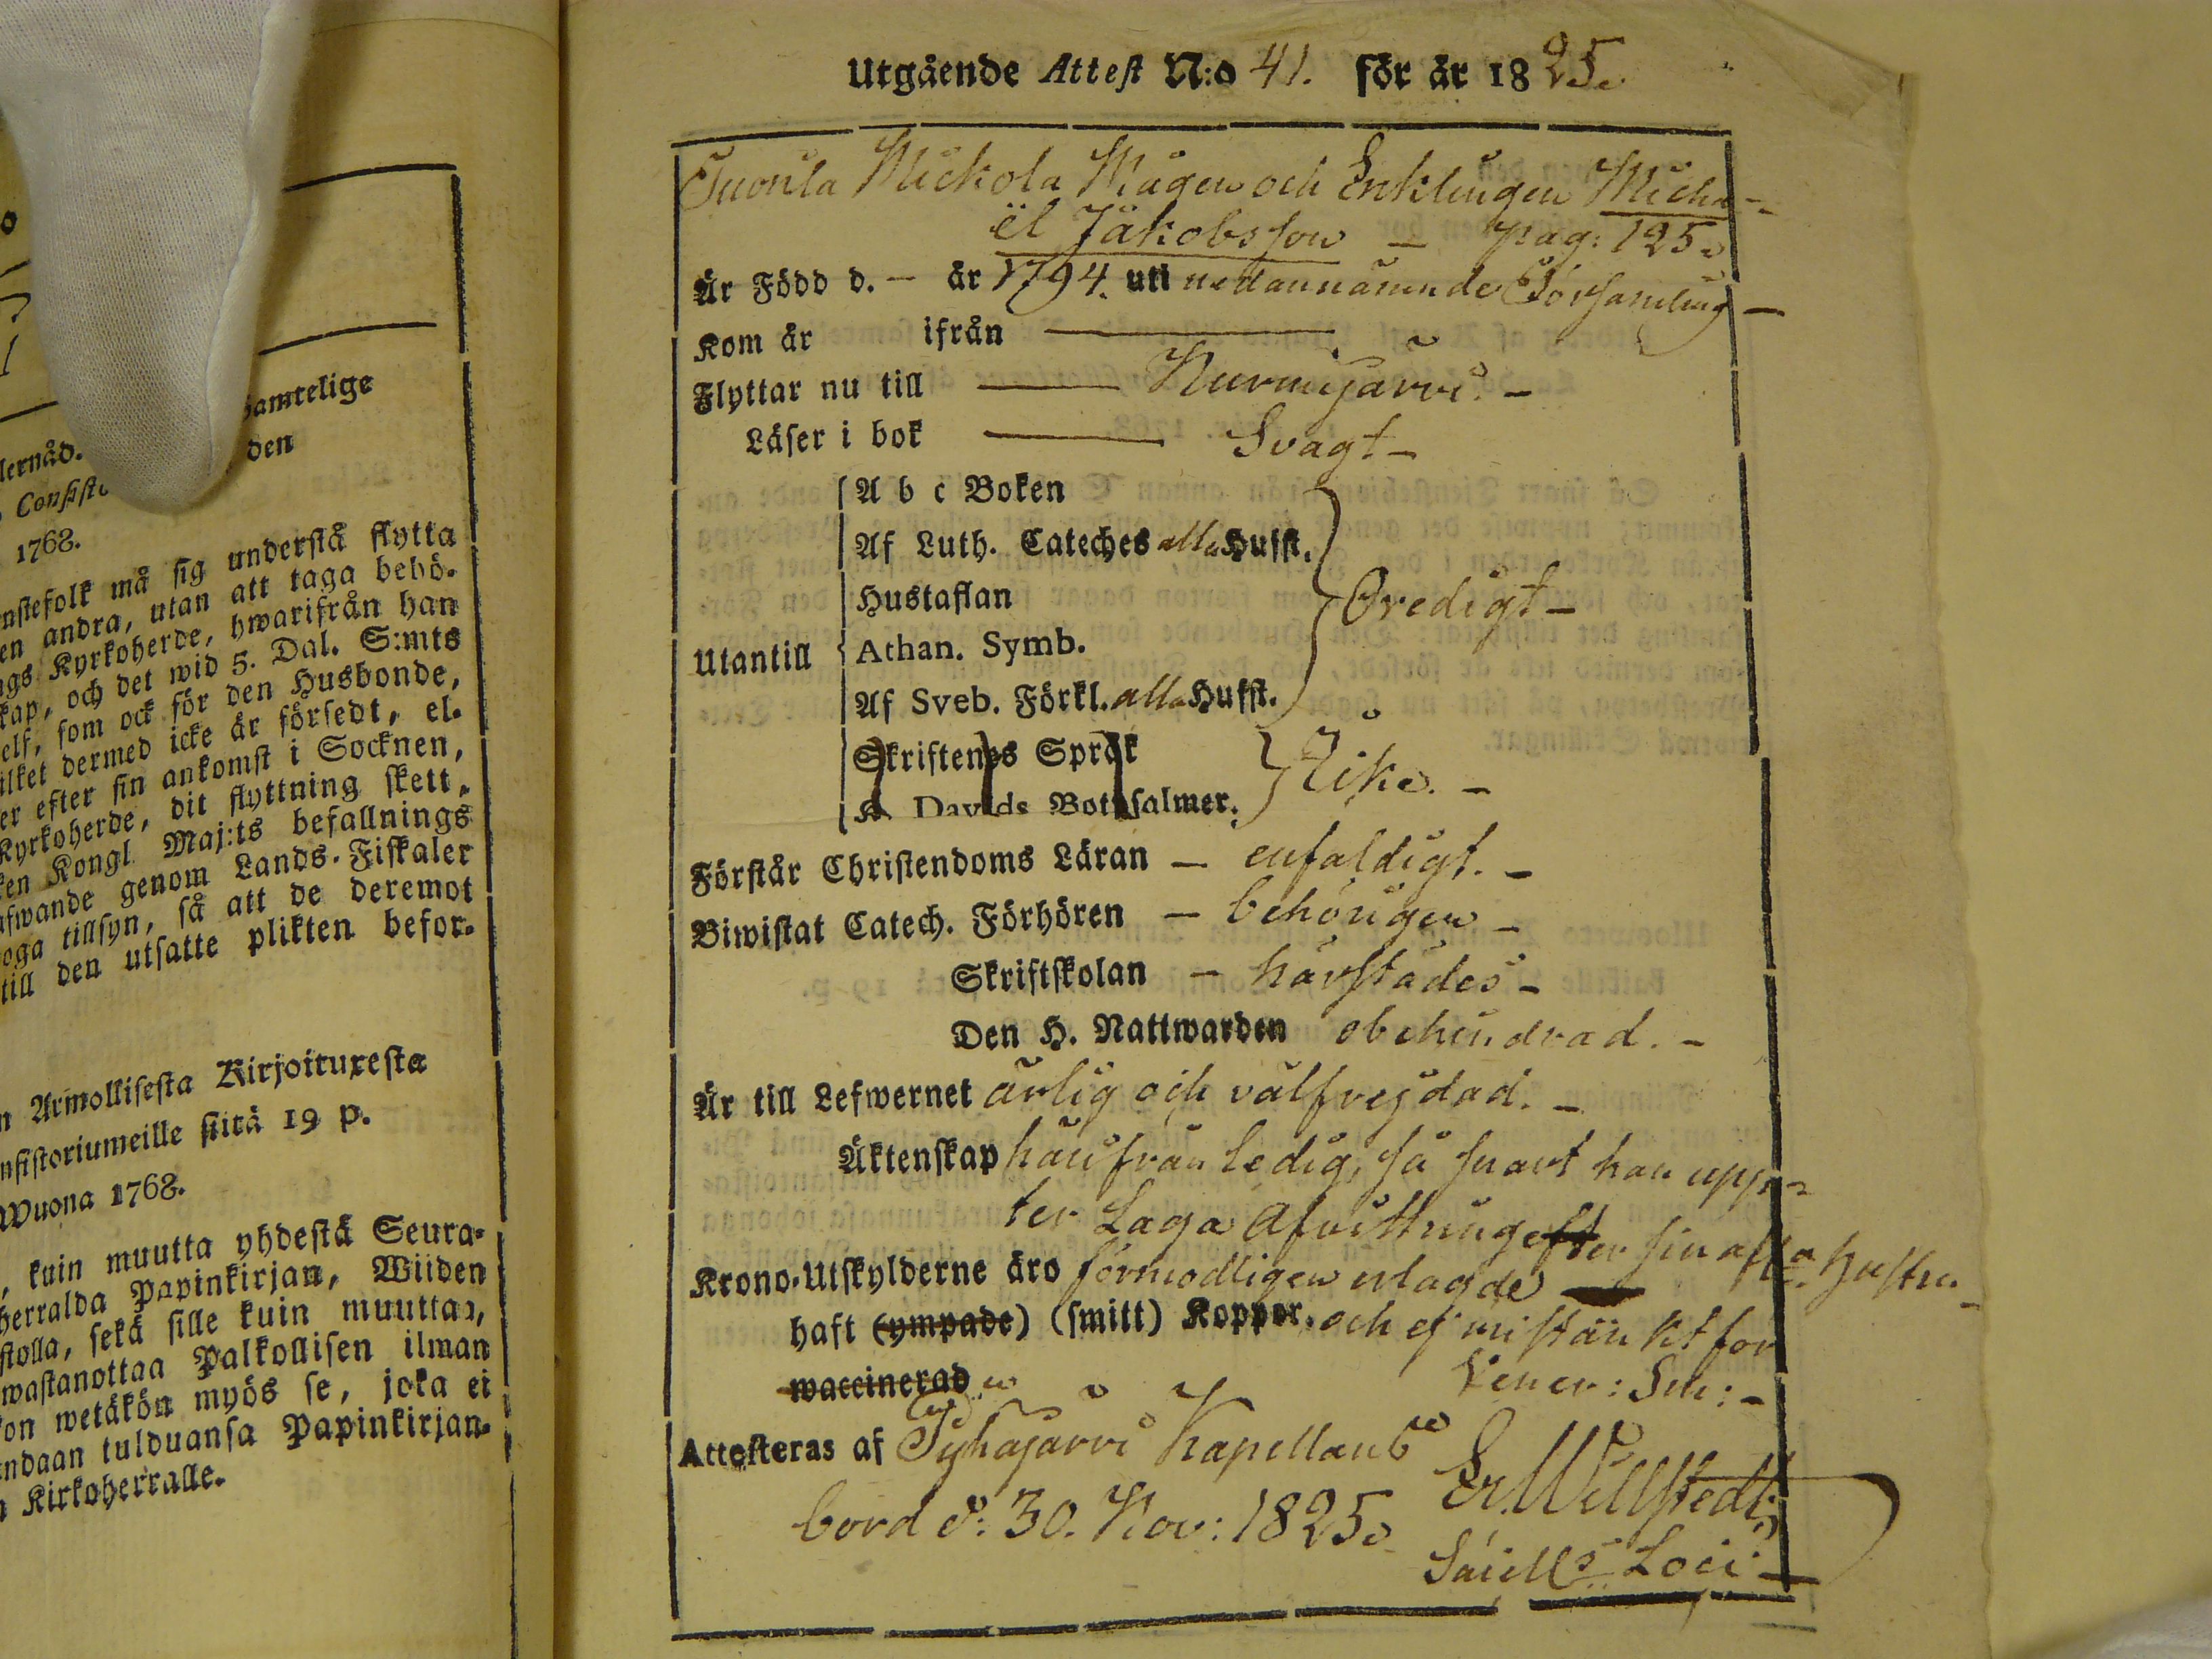 amtelige
lernåd. den
Consisto
1768.
nstefolk må sig understå flytta
en andra, utan att taga behö-
ngs Kyrkoherde, hwarifrån han
kap, och det wid 5. Dal. S:mts
elf, som ock för den Husbonde,
ilket dermed icke är försedt, el-
er efter sin ankomst i Socknen,
Kyrkoherde, dit flyttning skett,
ken Kongl. Maj:ts befallnings
afwande genom Lands-Fiskaler
oga tillsyn, så att de deremot
till den utsatte plikten befor-
n Armollisesta Kirjoituxesta
nsistoriumeille siitä 19 p.
Wuona 1768.
, kuin muutta yhdestä Seura-
herralda Papinkirjan, Wiiden
stolla, sekä sille kuin muuttaa,
wastanottaa Palkollisen ilman
on wetäkön myös se, joka ei
ndaan tulduansa Papinkirjan-
n Kirkoherralle.
Utgående Attest N:o 41. för år 1825.
Tuorila Mickola Mågen och Enklingen Micha-
ël Jakobsson — pag: 125.
Är Född d. — år 1794. uti nedannämnde Församling —
Kom år ifrån —
Flyttar nu till — Nurmijärvi. —
Läser i bok — Svagt —
Utantill
A b c Boken
Af Luth. Cateches alla Hufst.
Hustaflan
Athan. Symb.
Af Sveb. Förkl. alla Hufst.
Oredigt —
Skriftenes Språk
K. Davids Botpsalmer.
Icke. —
Förstår Christendoms Läran — enfaldigt. —
Biwistat Catech. Förhören — behörigen —
Skriftskolan — härstädes —
Den H. Nattwarden obehindrad. —
Är till Lefwernet ärlig och välfrejdad. —
Äktenskap härifrån ledig, så snart han upp-
ter Laga Afvittring efter sin afl:a hustru —
Krono-Utskylderne äro förmodligen erlagde —
haft (ympade) (smitt) Koppor. och ej misstänkt för
waccinerad Vener: Sm: —
Attesteras af Pyhäjärvi Kapellans
bord d: 30. Nov: 1825. Er. Wellstedt,
Sacell: Loci —